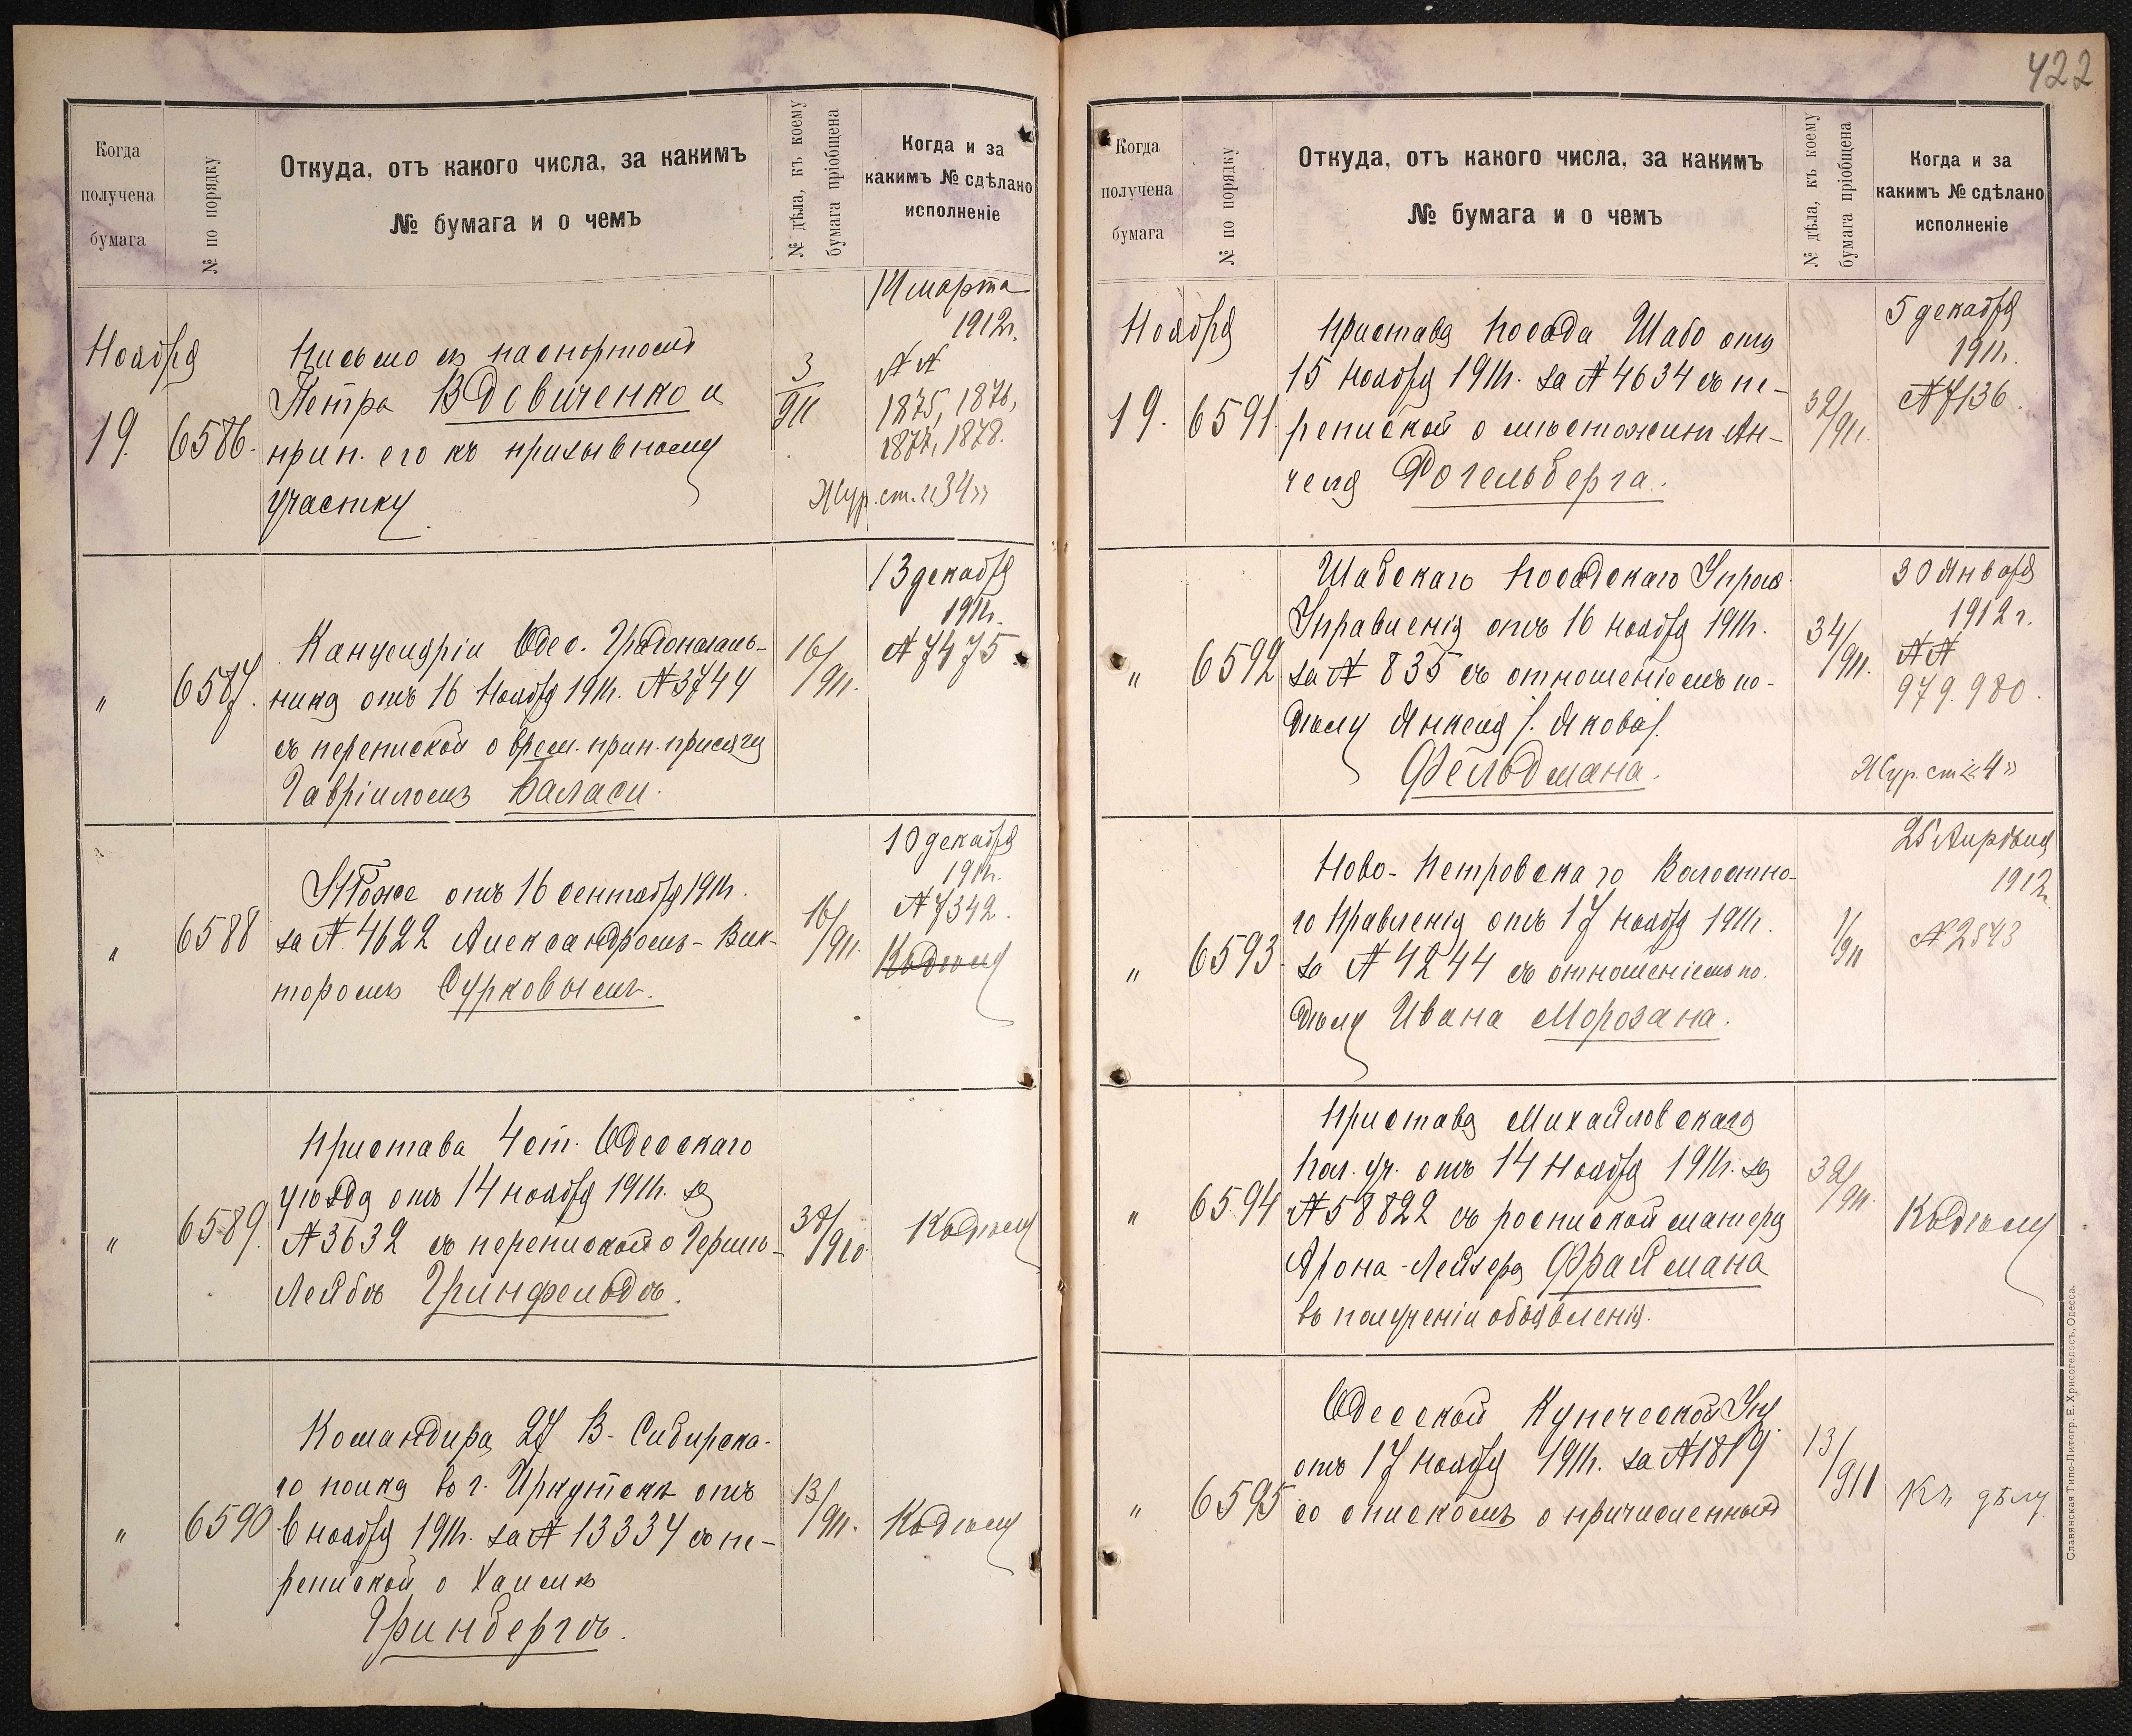 Когда
получена
бумага
№ по порядку
Откуда, отъ какого числа, за какимъ
№ бумага и о чемъ
№ дѣла, къ коему
бумага пріобщена
Когда и за
какимъ № сдѣлано
исполненіе
Ноября
19.
6586.
Письмо съ паспортомъ
Петра Вдовиченко и
прип. его къ призывному
участку
3/911
14 марта
1912г.
№№
1875, 1876,
1877, 1878.
Жур. ст. "34"
"
6587.
Канцеляріи Одес. Градоначаль-
ника отъ 16 Ноября 1911г. №3744
съ перепиской о врем. прин. присяги
Гавріиломъ Баласи.
16/911.
13 декабря
1911г.
№ 7475.
"
6588
Тоже отъ 16 сентября 1911г.
за № 4622 Александромъ-Вик-
торомъ Сурковымъ.
16/911.
10 декабря
1911г.
№ 7342.
Къ дѣлу
"
6589.
Пристава 4 ст. Одесскаго
уѣзда отъ 14 ноября 1911г. за
№3632 съ перепиской о Гершъ-
Лейбѣ Гринфельдѣ.
38/910.
Къ дѣлу
"
6590
Командира 27 В-Сибирска-
го полка въ г. Иркутскѣ отъ
6 ноября 1911г. за № 13334 съ пе-
репиской о Хаимѣ
Гринбергѣ.
13/911.
Къ дѣлу
422
Когда
получена
бумага
№ по порядку
Откуда, отъ какого числа, за какимъ
№ бумага и о чемъ
№ дѣла, къ коему
бумага пріобщена
Когда и за
какимъ № сдѣлано
исполненіе
Ноября
19.
6591.
Пристава посада Шабо отъ
15 ноября 1911г. за № 4634 съ пе-
репиской о мѣстожит. Ан-
челя Фогельберга.
32/911.
5 декабря
1911г.
№7136.
"
6592
Шабскаго Посадскаго Управ.
Управленія отъ 16 ноября 1911г.
за № 835 съ отношеніемъ по
дѣлу Янкеля /. Якова/.
Фельдмана.
34/911.
30 Января
1912 г.
№№
979. 980.
Жур. ст. «4»
"
6593.
Ново-Петровскаго Волостно-
го Правленія отъ 17 ноября 1911г.
за № 4244 съ отношеніемъ по.
дѣлу Ивана Морозана.
1/911
25 Апрѣля
1912г.
№2543
"
6594
Пристава Михайловскаго
пол. уч. отъ 14 Ноября 1911г. за
№58822 съ роспиской матери
Арона-Лейзера Фраймана
въ полученіи объявленія.
32/911.
Къ дѣлу
"
6595
Одесской Купеческой Упр.
отъ 17 ноября 1911г. за №1819
со спискомъ о причисленныхъ
13/911
Къ дѣлу
Славянская Типо-Литогр. Е. Хрисогелосъ, Одесса.